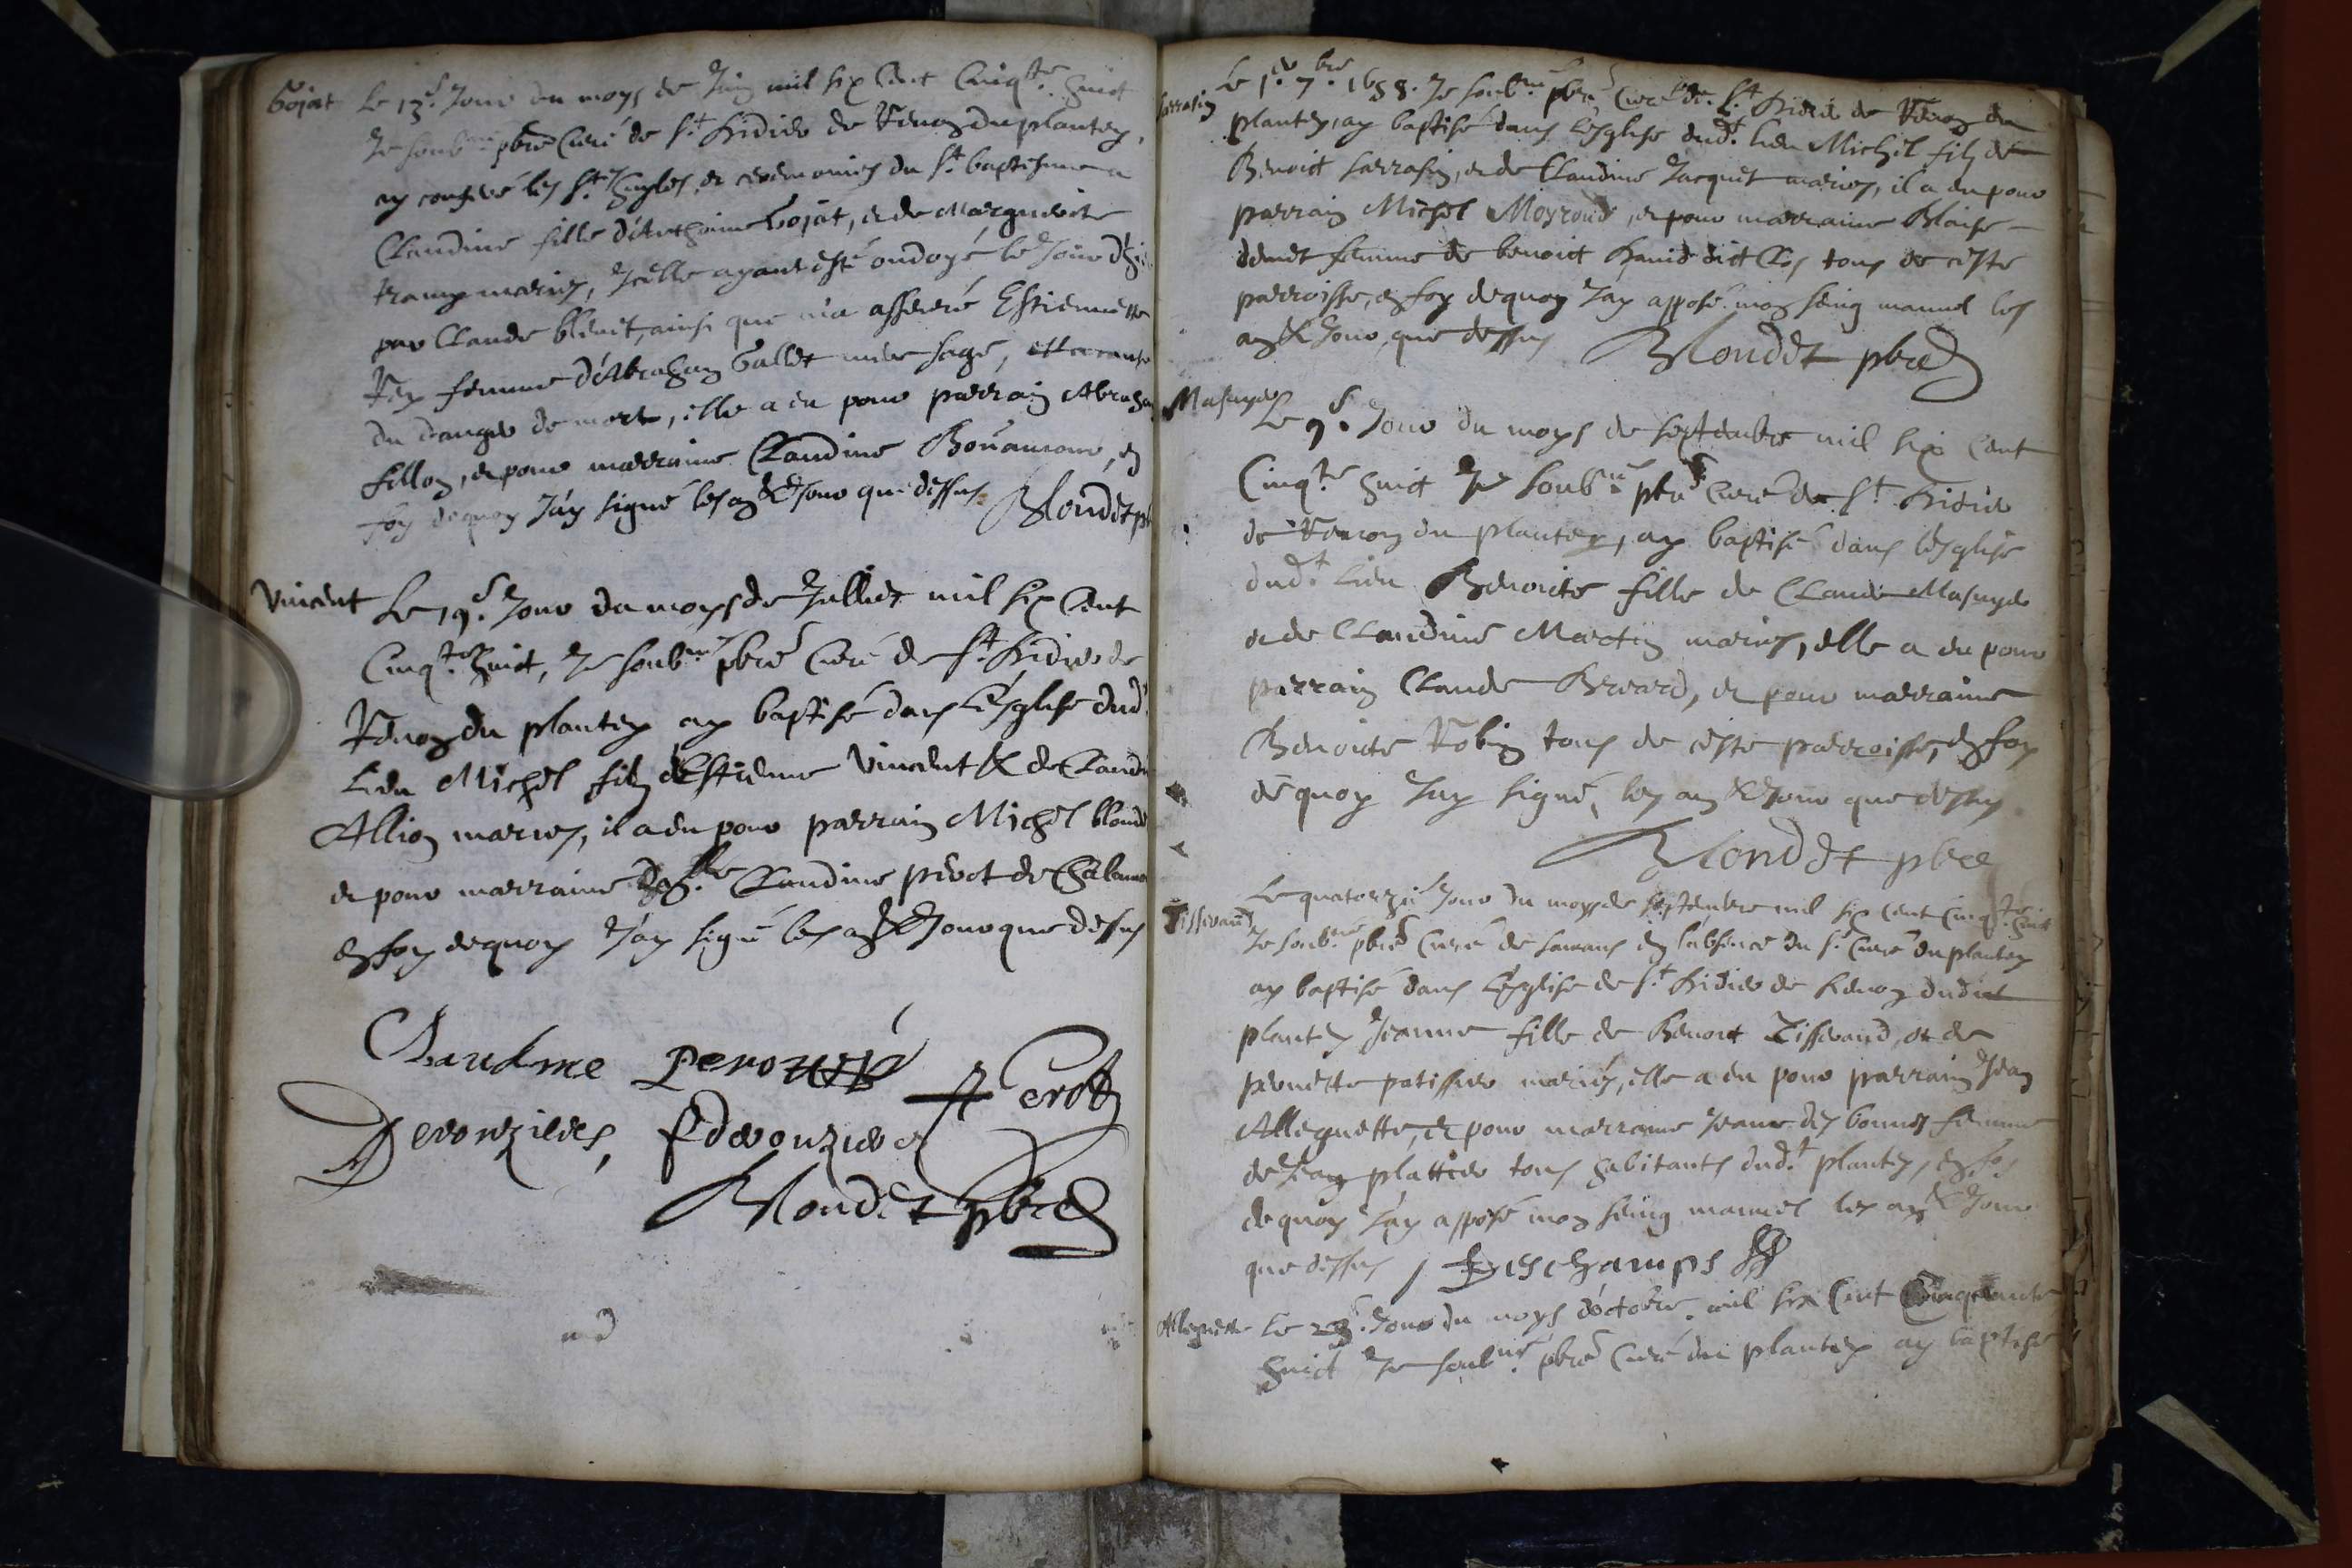 Gojat Le 13e. Jour du moys de Juin mil six Cent Cinqte. huict
Je soubné pbre Curé de St. Didier de Renon du plantey,
ay conferé les Stes. huyles, et ceremonies du St. baptesme a
Claudine fille d'Anthoine Gojat, et de Marguerite
mariés, Icelle ayant esté ondoyé le Jour d'hier
par Claude blenet, ainsi que m'a asseuré Estiennette
Rey femme d'Abraham Gallet mere sage, et a cause
du danger de mort, elle a eu pour parrain Abraham
fillon, et pour marraine Claudine en
foy dequoy J'ay signé les an & Jour que dessus. Blondet pb
Vincent Le 19e. Jour du moys de Jullier mil six Cent
Cinqte. huict, Je soubné pbre Curé de St. Didier de
Renon du plantey ay baptisé dans l'esglise dudt
Lieu Michel filz d'Estienne Vincent & de Claudi
Allion mariés, il a eu pour parrain Michel blonde
et pour marraine Claudine perot de
en foy dequoy J'ay signé les an & Jour que dessus
Claudine perot
Deronzieres, Perot
Blondet pbre
Sarrasin Le 1er. 7bre. 1658. Je soubné pbre Curé de St. Didier de Renon du
plantey, ay baptisé dans l'esglise dudt. lieu Michel filz de
Benoict Sarrasin, et de Claudine Jacquet mariés, il a eu pour
parrain Michel Moyroud, et pour marraine Blaise
femme de benoict dict Clos tous de ceste
parroisse, en foy dequoy J'ay apposé mon seing manuel les
an & Jour que dessus Blondet pbre
Masuyer Le 9e. Jour du moys de septembre mil six Cent
Cinqte huict Je soubné pbre Curé de St. Didier
de Renon du plantey, ay baptisé dans l'esglise
dudt. Lieu Benoicte fille de Claude Masuyer
et de Claudine Martin mariés, elle a eu pour
parrain Claude Brevard, et pour marraine
Benoicte Robin tous de ceste parroisse, en foy
dequoy J'ay signé, les an & Jour que dessus
Blondet pbre
Tisserand Le quatorzie Jour du moys de septembre mil six Cent Cinqte huit
Je soubné pbre Curé de Sandrans en l'absence du Sr. Curé du plantey
ay baptisé dans l'esglise de St. Didier de Renon dudict
plantey Jeanne fille de Benoict Tisserand, et de
pernette patissier mariés, elle a eu pour parrain Jean
Alleguette, et pour marraine Jeane des bonnes femme
de Jean plattier tous habitants dudt. plantey, en foy
dequoy J'ay apposé mon seing manuel les an & Jour
que dessus Deschamps
Alleguette Le 23e. Jour du moys d'octobre mil six Cent Cinquante
huict Je soubné pbre Curé du plantey ay baptisé